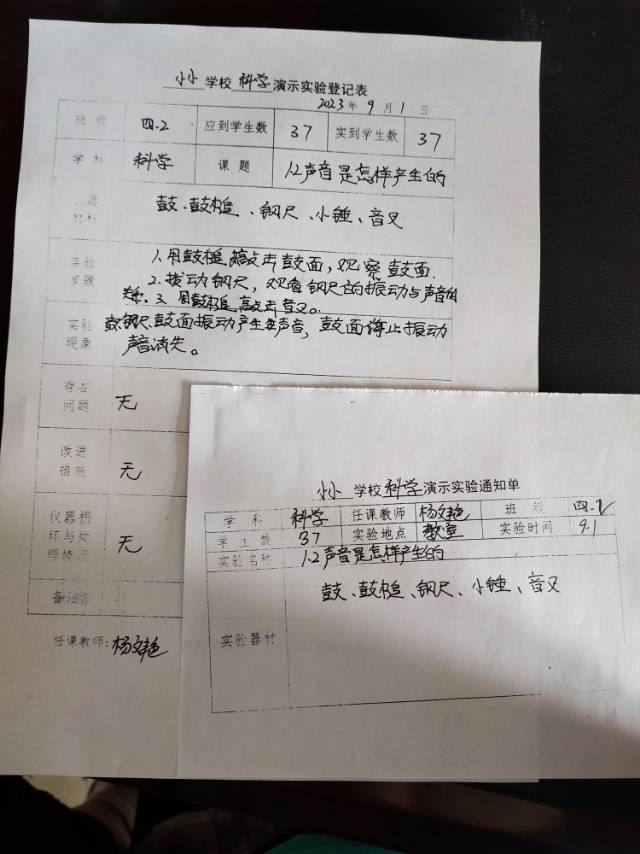 小小 学校 科学 演示实验登记表
2023年9月1日
班级 四.2 应到学生数 37 实到学生数 37
学科 科学 课题 1.2声音是怎样产生的
鼓、鼓槌、钢尺、小锤、音叉
材料
实验 1.用鼓槌敲击鼓面,观察鼓面.
步骤 2.拨动钢尺,观看钢尺的振动与声音的
关系. 3.用鼓槌敲击音叉。
实验 钢尺、鼓面振动产生声音,鼓面停止振动
现象 声音消失。
存在
问题 无
改进
措施 无
仪器损
坏与处 无
理情况
备注
任课教师:杨文艳
小小 学校 科学 演示实验通知单
学科 科学 任课教师 杨文艳 班级 四.2
学生数 37 实验地点 教室 实验时间 9.1
实验名称 1.2声音是怎样产生的
鼓、鼓槌、钢尺、小锤、音叉
实验器材